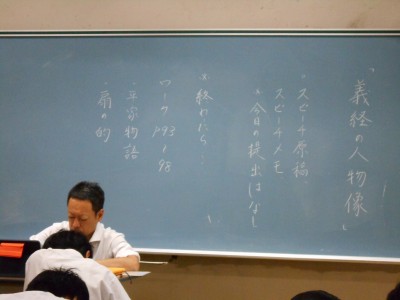 「義経の人物像」
・スピーチ原稿
スピーチメモ
※今日の提出はなし
※終わったら…
ワーク P93〜98
・平家物語
・扇の的